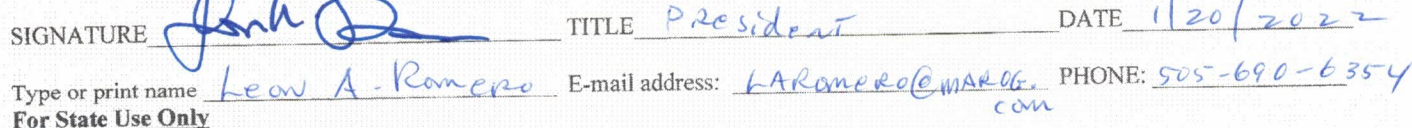 SIGNATURE TITLE President DATE 1/20/2022
Type or print name Leon A. Romero E-mail address: LARomero@MAROG. PHONE: 505-690-6354
com
For State Use Only